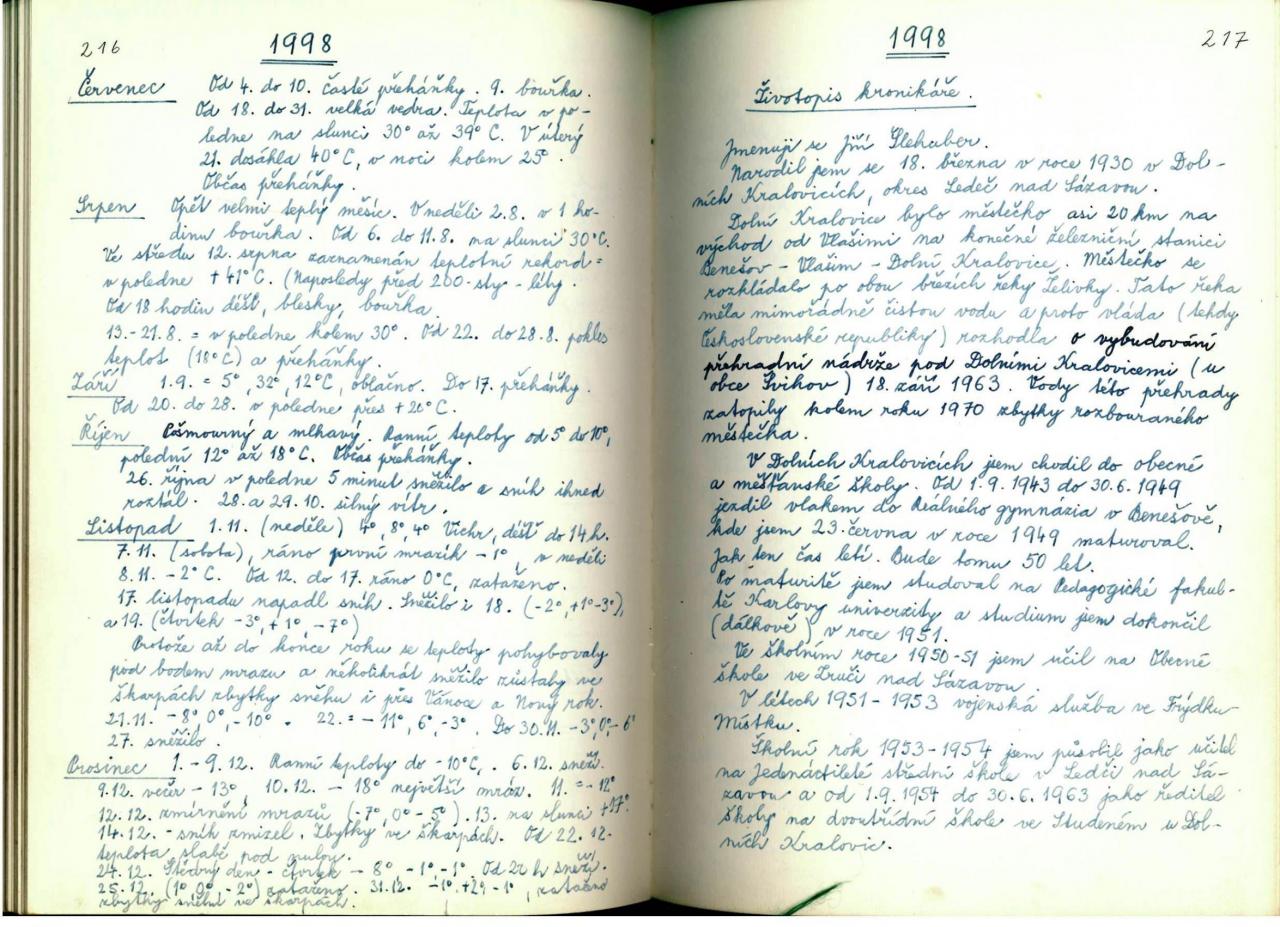 216
1998
Červenec Od 4. do 10. časté přeháňky. 9. bouřka.
Od 18. do 31. velká vedra. Teplota v po-
ledne na slunci 30° až 39° C. V úterý
21. dosáhla 40°C, v noci kolem 25°.
Občas přeháňky.
Srpen Opět velmi teplý měsíc. V neděli 2.8. v 1 ho-
dinu bouřka. Od 6. do 11.8. na slunci 30°C.
Ve středu 12. srpna zaznamenán teplotní rekord =
v poledne +41°C. (Naposledy před 200-sty - léty.
Od 18 hodin déšť, blesky, bouřka.
13.-21.8. = v poledne kolem 30°. Od 22. do 28.8. pokles
teplot (18°C) a přeháňky.
Září 1.9. = 5°, 32°, 12°C, oblačno. Do 17. přeháňky.
Od 20. do 28. v poledne přes +20°C.
Říjen Pošmourný a mlhavý. Ranní teploty od 5° do 10°,
polední 12° až 18°C. Občas přeháňky.
26. října v poledne 5 minut sněžilo a sníh ihned
roztál. 28. a 29.10. silný vítr.
Listopad 1.11. (neděle) 4°, 8°, 4° Vichr, déšť do 14 h.
7.11. (sobota), ráno první mrazík -1° v neděli
8.11. -2°C. Od 12. do 17. ráno 0°C, zataženo.
17. listopadu napadl sníh. Sněžilo i 18. (-2°, +1° -3°),
a 19. (čtvrtek -3°, +1°, -7°)
Protože až do konce roku se teploty pohybovaly
pod bodem mrazu a několikrát sněžilo zůstaly ve
škarpách zbytky sněhu i přes Vánoce a Nový rok.
21.11. -8°, 0°, -10°. 22. = -11°, 6°, -3°. Do 30.11. -3°, 0°, -6°
27. sněžilo.
Prosinec 1. - 9.12. Ranní teploty do -10°C,. 6.12. sněží.
9.12. večer - 13°, 10.12. - 18° největší mráz. 11. = -12°
12.12. zmírnění mrazů (-7°, 0° -5°). 13. na slunci +17°.
14.12. - sníh zmizel. Zbytky ve škarpách. Od 22.12.
teplota slabě pod nulou.
24.12. Štědrý den - čtvrtek - 8°, -1°, -1°. Od 22 h sněží.
25.12. (1°, 0°, -2°) zataženo. 31.12. -1° +2° -1°, zataženo
zbytky sněhu ve škarpách.
1998
217
Životopis kronikáře.
Jmenuji se Jiří Slehuber.
Narodil jem se 18. března v roce 1930 v Dol-
ních Kralovicích, okres Ledeč nad Sázavou.
Dolní Kralovice bylo městečko asi 20 km na
východ od Vlašimi na konečné železniční stanici
Benešov - Vlašim - Dolní Kralovice. Městečko se
rozkládalo po obou březích řeky Želivky. Tato řeka
měla mimořádně čistou vodu a proto vláda (tehdy
Československé republiky) rozhodla o vybudování
přehradní nádrže pod Dolními Kralovicemi (u
obce Švihov) 18. září 1963. Vody této přehrady
zatopily kolem roku 1970 zbytky rozbouraného
městečka.
V Dolních Kralovicích jsem chodil do obecné
a měšťanské školy. Od 1.9.1943 do 30.6.1949
jezdil vlakem do Reálného gymnázia v Benešově,
kde jsem 23. června v roce 1949 maturoval.
Jak ten čas letí. Bude tomu 50 let.
Po maturitě jsem studoval na Pedagogické fakul-
tě Karlovy univerzity a studium jsem dokončil
(dálkově) v roce 1951.
Ve školním roce 1950-51 jsem učil na Obecné
škole ve Zruči nad Sázavou.
V létech 1951 - 1953 vojenská služba ve Frýdku-
Místku.
Školní rok 1953-1954 jsem působil jako učitel
na Jedenáctileté střední škole v Ledči nad Sá-
zavou a od 1.9.1954 do 30.6.1963 jako ředitel
školy na dvoutřídní škole ve Studeném u Dol-
ních Kralovic.